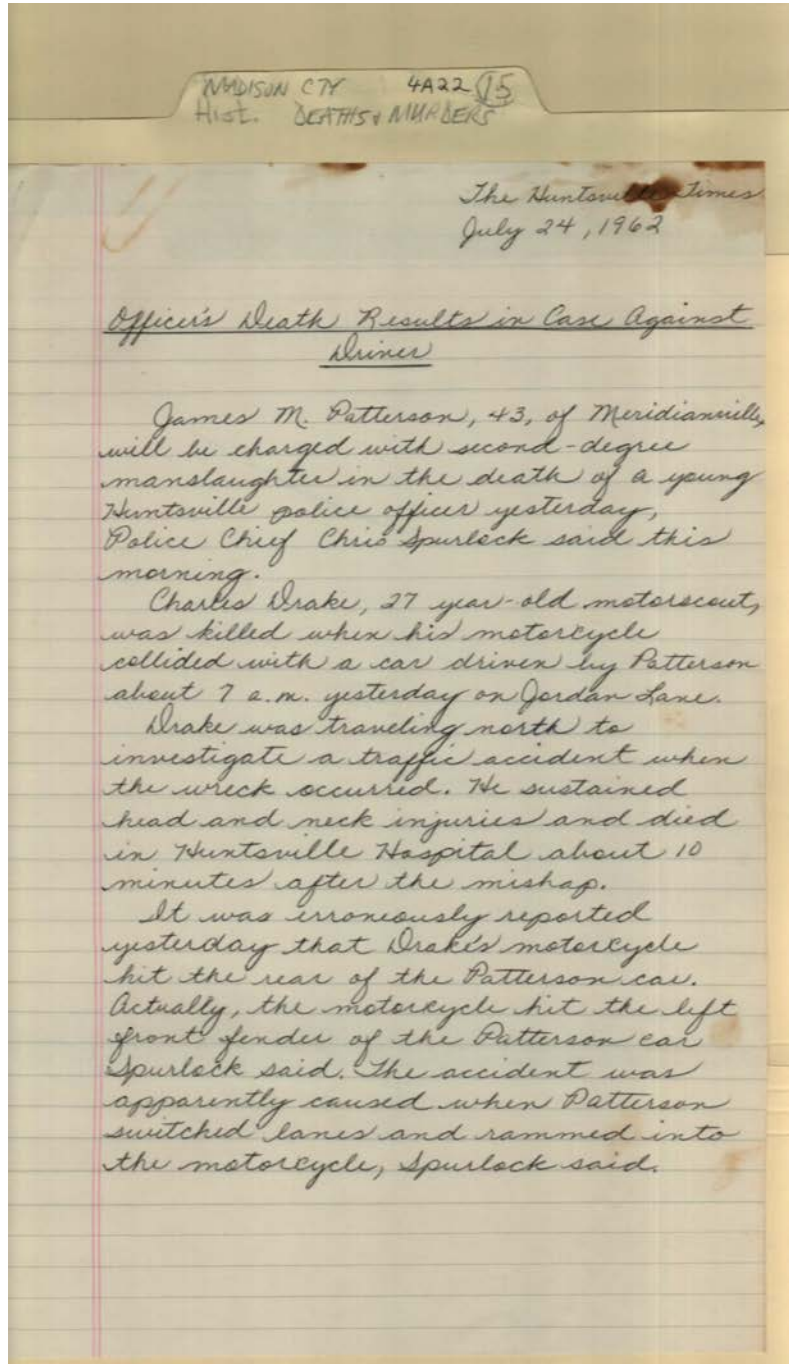 MADISON CTY 4A22 15
Hist. DEATHS & MURDERS
The Huntsville Times
July 24, 1962
Officer's Death Results in Case Against
Driver
James M. Patterson, 43, of Meridianville,
will be charged with second-degree
manslaughter in the death of a young
Huntsville police officer yesterday,
Police Chief Chris Spurlock said this
morning.
Charles Drake, 27 year-old motorscout,
was killed when his motorcycle
collided with a car driven by Patterson
about 7 a.m. yesterday on Jordan Lane.
Drake was traveling north to
investigate a traffic accident when
the wreck occurred. He sustained
head and neck injuries and died
in Huntsville Hospital about 10
minutes after the mishap.
It was erroneously reported
yesterday that Drake's motorcycle
hit the rear of the Patterson car.
Actually, the motorcycle hit the left
front fender of the Patterson car
Spurlock said. The accident was
apparently caused when Patterson
switched lanes and rammed into
the motorcycle, Spurlock said.